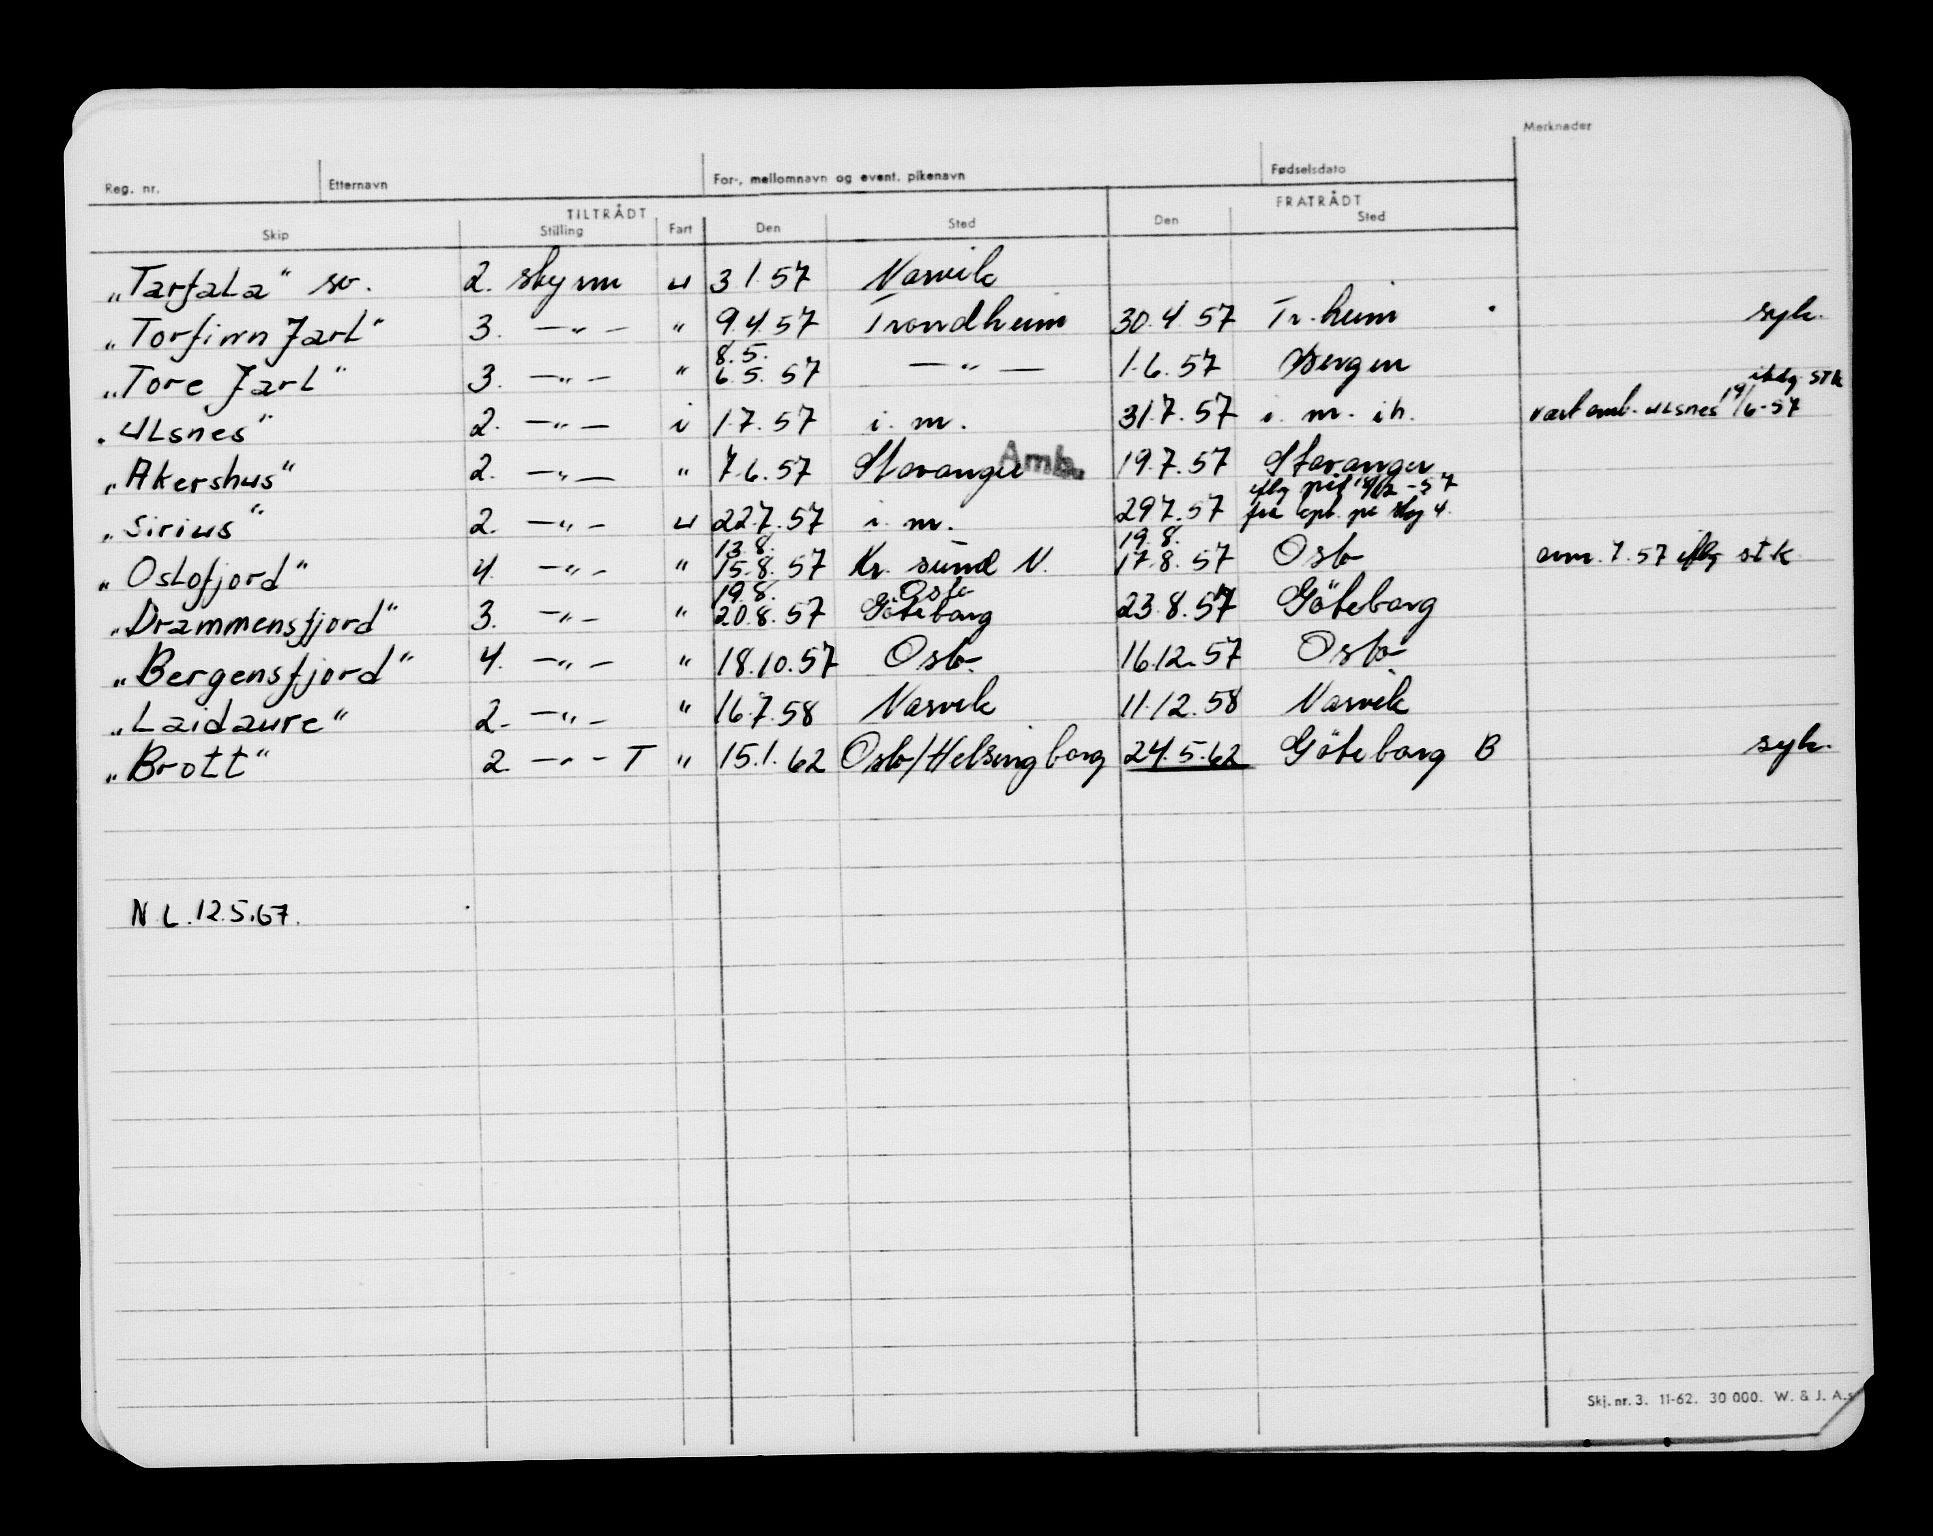 Merknader
Reg. nr. Etternavn For-, mellomnavn og event. pikenavn Fødselsdato
TILTRÅDT FRATRÅDT
Skip Stilling Fart Den Sted Den Sted
„Tarfala" sv. 2. skym u 3 1.57 Narvik
„Torfinn Jarl" 3. —„— " 9.4.57 Trondheim 30.4.57 Tr.heim syk.
8.5.
„Tore Jarl" 3. —„— " 6.5.57 —„— 1.6.57 Bergen
iflg STK
„Ulsnes" 2. —„— i 1.7.57 i. m. 31.7.57 i. m. ih. vært omb. Ulsnes 14/6-57
„Akershus" 2. —„— " 7.6.57 Stavanger Amb. 19.7.57 Stavanger
„Sirius" 2. —„— u 22.7.57 i. m. 29.7.57 fra
13.8. 19.8.
„Oslofjord" 4. —„— " 15.8.57 Kr. sund N. 17.8.57 Oslo 7.57 iflg stk
19.8. Oslo
„Drammensfjord" 3. —„— " 20.8.57 Göteborg 23.8.57 Göteborg
„Bergensfjord" 4. —„— " 18.10.57 Oslo 16.12.57 Oslo
„Laidaure" 2. —„— " 16.7.58 Narvik 11.12.58 Narvik
„Brott" 2. —„— T " 15.1.62 Oslo/Helsingborg 24.5.62 Göteborg B syk.
N.L. 12.5.67.
Skj. nr. 3. 11-62. 30 000. W. & J. A.s